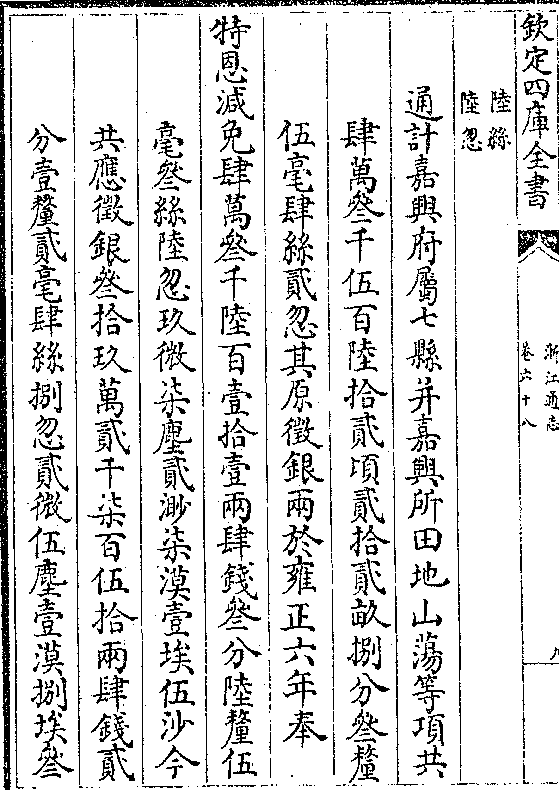 欽定四庫全書
浙江通志
卷六十八
陸絲
陸忽
通計嘉興府屬七縣并嘉興所田地山蕩等項共
肆萬叄千伍百陸拾貳頃貳拾貳畝捌分叄釐
伍毫肆絲貳忽其原徵銀兩於雍正六年奉
特恩減免肆萬叄千陸百壹拾壹兩肆錢叄分陸釐伍
毫叄絲陸忽玖微柒塵貳渺柒漠壹埃伍沙今
共應徵銀叄拾玖萬貳千柒百伍拾兩肆錢貳
分壹釐貳毫肆絲捌忽貳微伍塵壹漠捌埃叄